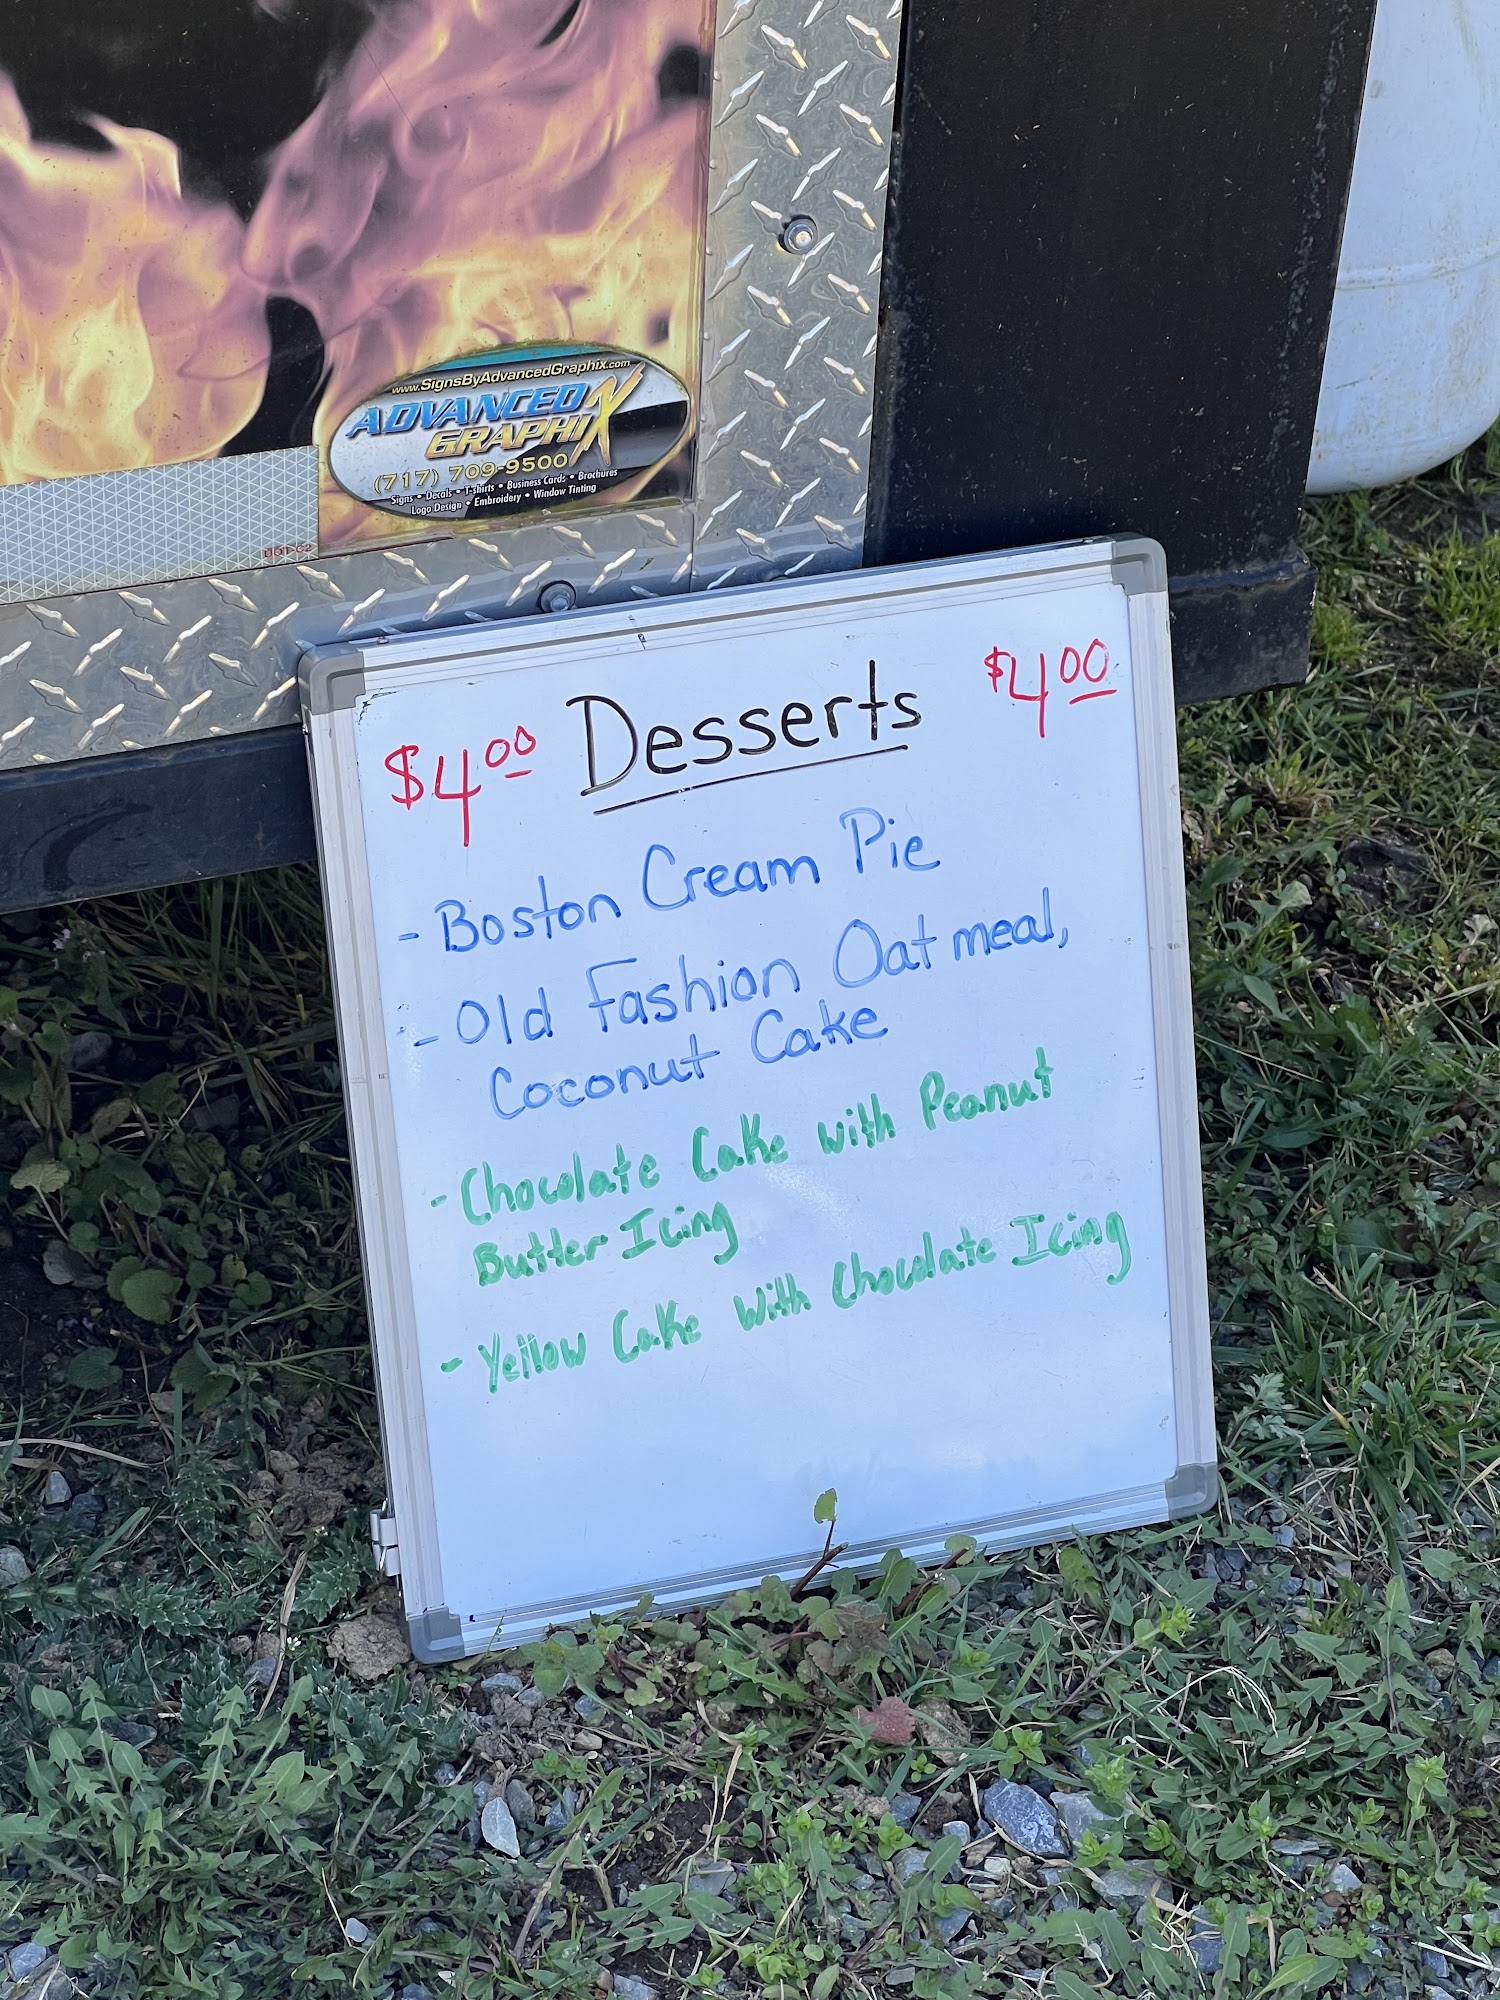 www.SignsByAdvancedGraphix.com
ADVANCED
GRAPHIX
(717) 709-9500
Signs • Decals • T-shirts • Business Cards • Brochures
Logo Design • Embroidery • Window Tinting
DOT-C2
$4.00 Desserts $4.00
- Boston Cream Pie
- Old Fashion Oatmeal,
Coconut Cake
- Chocolate Cake with Peanut
Butter Icing
- Yellow Cake with Chocolate Icing